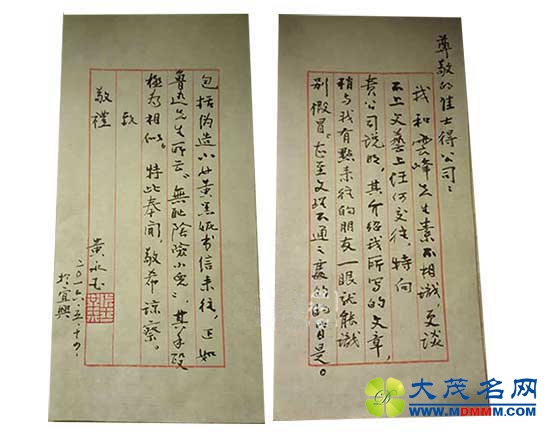 尊敬的佳士得公司：
我和雲峰先生素不相識，更談
不上文藝上任何交往，特向
貴公司说明，其介绍我所写的文章，
稍与我有點来往的朋友一眼就能識
别假冒。甚至文理不通之處皆是。
包括伪造小女黄黑妮书信来往，正如
鲁迅先生所云：無恥陰險小兒，其手段
極为相似。特此奉聞，敬希諒察。
致
敬禮
黄永玉
二〇一六.五.十
於宜興
大茂名网
WWW.MDMMM.COM